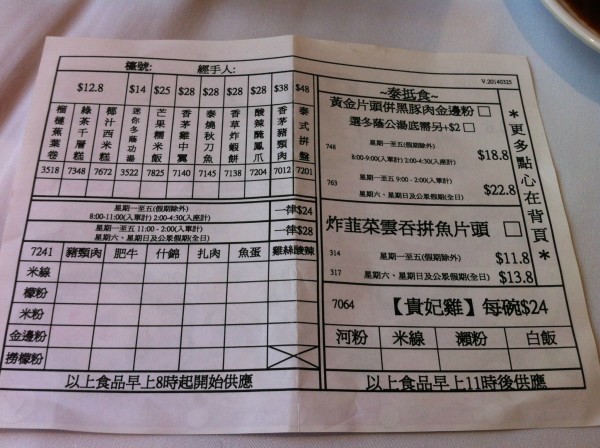 檯號: 經手人:
V.20140325
$12.8 $14 $25 $28 $28 $28 $28 $38 $48
榴槤蕉葉卷
綠茶千層糕
椰汁西米糕
迷你冬蔭功湯
芒果糯米飯
香茅雞中翼
泰燒秋刀魚
香草炸蝦餅
酸辣醃鳳爪
香茅豬頸肉
泰式拼盤
3518 7348 7672 3522 7825 7140 7145 7138 7204 7012 7201
星期一至五(假期除外)
8:00-11:00(入單計) 2:00-4:30(入座計) 一律$24
星期一至五 11:00 - 2:00(入單計)
星期六、星期日及公眾假期(全日) 一律$28
7241 豬頸肉 肥牛 什錦 扎肉 魚蛋 雞絲酸辣
米線
檬粉
米粉
金邊粉
撈檬粉
以上食品早上8時起開始供應
~泰抵食~
黃金片頭併黑豚肉金邊粉□
選冬蔭公湯底需另+$2□
748 星期一至五(假期除外)
8:00-9:00(入單計) 2:00-4:30(入座計) $18.8
763 星期一至五 9:00 - 2:00(入單計)
星期六、星期日及公眾假期(全日) $22.8
炸韮菜雲吞拼魚片頭□
314 星期一至五(假期除外) $11.8
317 星期六、星期日及公眾假期(全日) $13.8
*更多點心在背頁*
7064 【貴妃雞】每碗$24
河粉 米線 瀨粉 白飯
以上食品早上11時後供應